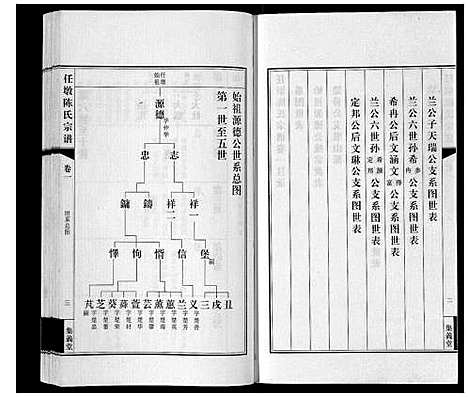 兰公子天瑞公支系图世表
兰公六世孙希冉公支系图世表
希冉公后文涵文公支系图世表
兰公六世孙希颜定邦公支系图世表
定邦公后文琳公支系图世表
二
集義堂
始祖源德公世系总图
第一世至五世
任墩始祖
源德
志
忠
祥一
祥二
鑄
鏞
堡
嗣
信
惰
恂
懌
丑
戌
三
义
兰
蕙
薰
芸
萱
蕣
葵
芝
芃
任墩陈氏宗谱
卷一
世系总图
三
集義堂